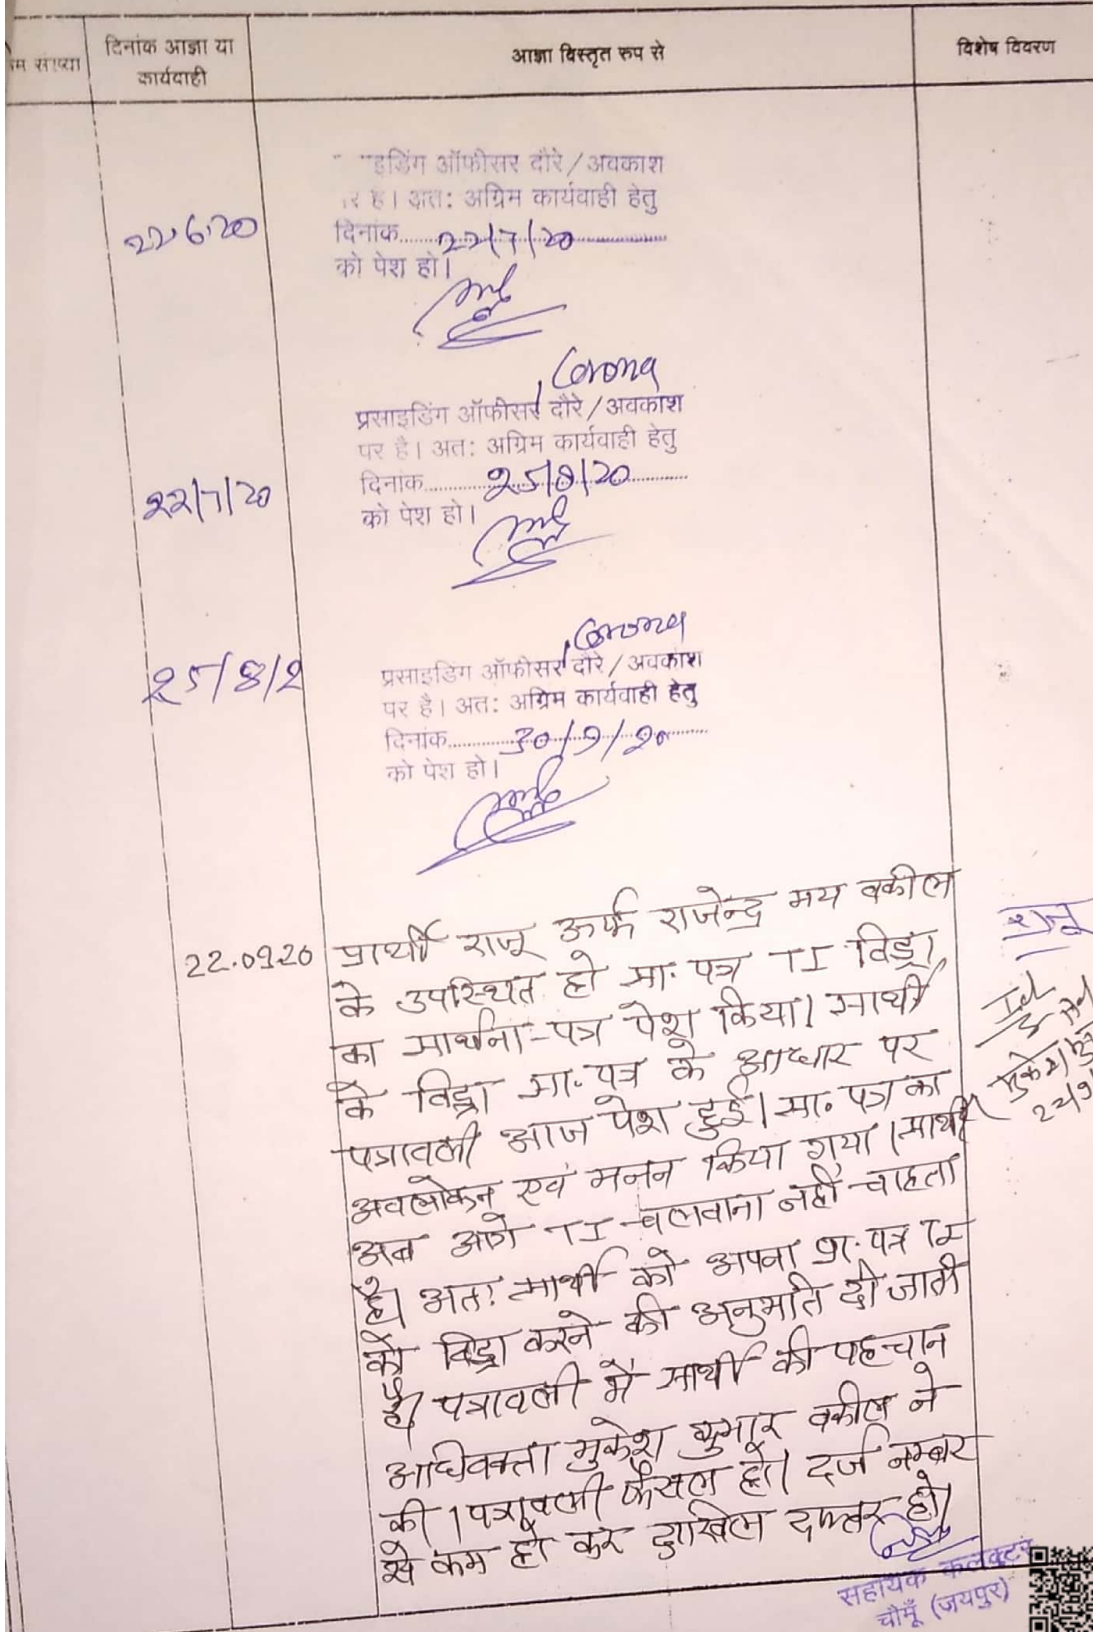 दिनांक आज्ञा या
कार्यवाही
आज्ञा विस्तृत रुप से
विशेष विवरण
इडिंग ऑफीसर दौरे/अवकाश
र है। अत: अग्रिम कार्यवाही हेतु
22.6.20
दिनांक........22/7/20................
को पेश हो।
Corona
प्रसाइडिंग ऑफीसर, दौरे/अवकाश
पर है। अत: अग्रिम कार्यवाही हेतु
22/7/20
दिनांक...........25/8/20...........
को पेश हो।
Corona
25/8/2
प्रसाइडिंग ऑफीसर, दौरे/अवकाश
पर है। अत: अग्रिम कार्यवाही हेतु
दिनांक...........30/9/20........
को पेश हो।
22.09.20 प्रार्थी राजू उर्फ राजेन्द्र मय वकील
राजू
के उपस्थित हो प्रा. पत्र TI विड्रा
का प्रार्थना-पत्र पेश किया। प्रार्थी
के विड्रा प्रा. पत्र के आधार पर
पत्रावली आज पेश हुई। प्रा. पत्र का
अवलोकन एवं मनन किया गया। प्रार्थी
अब आगे TI चलवाना नहीं चाहता
है। अत: प्रार्थी को अपना प्रा. पत्र TI
को विड्रा करने की अनुमति दी जाती
है। पत्रावली में प्रार्थी की पहचान
अधिवक्ता मुकेश कुमार वकील ने
की। पत्रावली फैसल हो। दर्ज नम्बर
से कम हो कर दाखिल दफ्तर हो।
सहायक कलक्टर
चौमूँ (जयपुर)